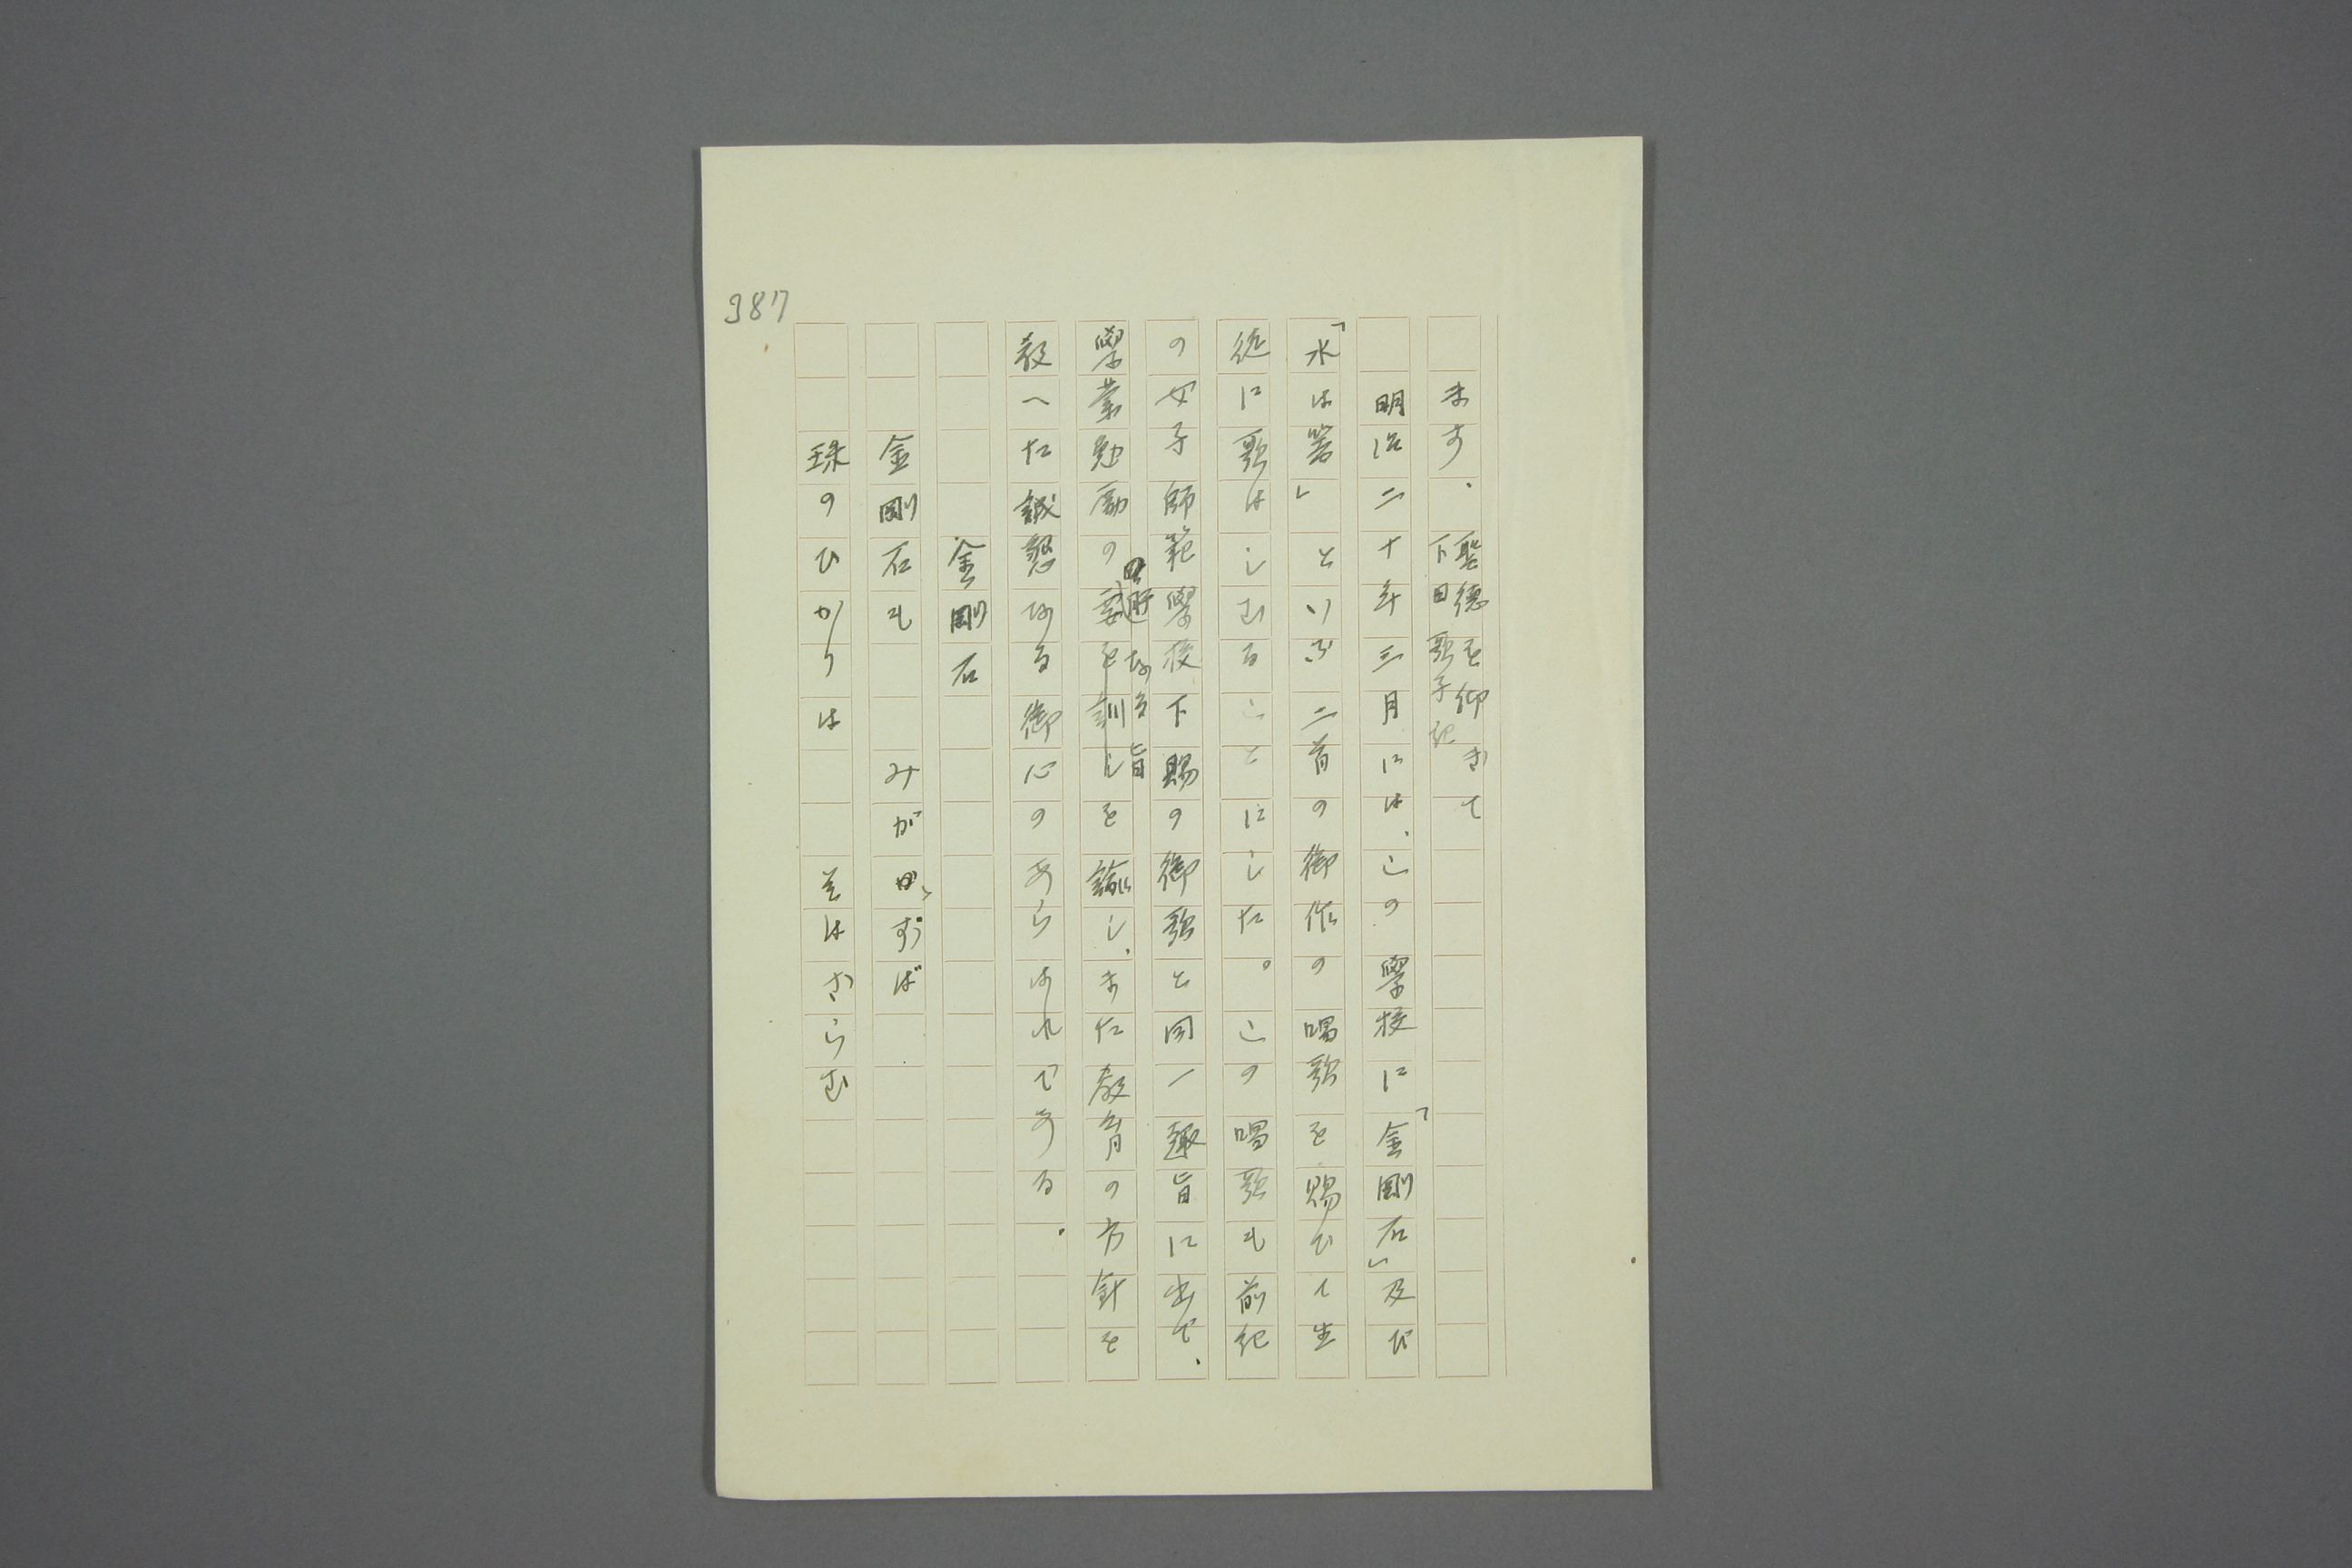 387
ます。聖徳を仰ぎて
下田歌子記
明治二十年三月には、この學校に「金剛石」及び
「水は器」といふ二首の御作の唱歌を賜ひて生
徒に歌はしむることにした。この唱歌も前記
の女子師範學校下賜の御歌と同一趣旨に出で、
學業勉励の肝要なる旨を諭し、また教育の方針を
教へた誠懇なる御心のあらはれである。
金剛石
金剛石も みがかずば
珠のひかりは そはざらむ